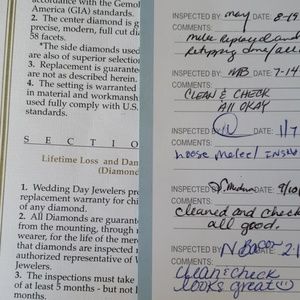 accordance with the Gemol
America (GIA) standards.
2. The center diamond is g
precise, modern, full cut dia
58 facets.
*The side diamonds used
are also of superior selection
3. Replacement is guarante
are not as described herein.
4. The setting is warranted
in material and workmansh
used fully comply with U.S.
standards.
S E C T I O
Lifetime Loss and Dam
(Diamond
1. Wedding Day Jewelers pr
replacement warranty for chi
of any diamond.
2. All Diamonds are guarant
from the mounting, through n
wearer, for the life of the mer
that diamonds are inspected i
authorized representative of W
Jewelers.
3. The inspections must take
of at least 5 months - but not l
months.
INSPECTED BY: may DATE: 8-19
COMMENTS:
melee replaced and
retipping done/all
INSPECTED BY: MB DATE: 7-14
COMMENTS:
CLEAN & CHECK
All OKAY
INSPECTED BY: DATE: 1/7
COMMENTS:
Loose melee/ INSIDE
INSPECTED BY: DATE: 9/10
COMMENTS:
cleaned and check
all good.
INSPECTED BY: N Bacon DATE: 2-1
COMMENTS:
clean & check
looks great